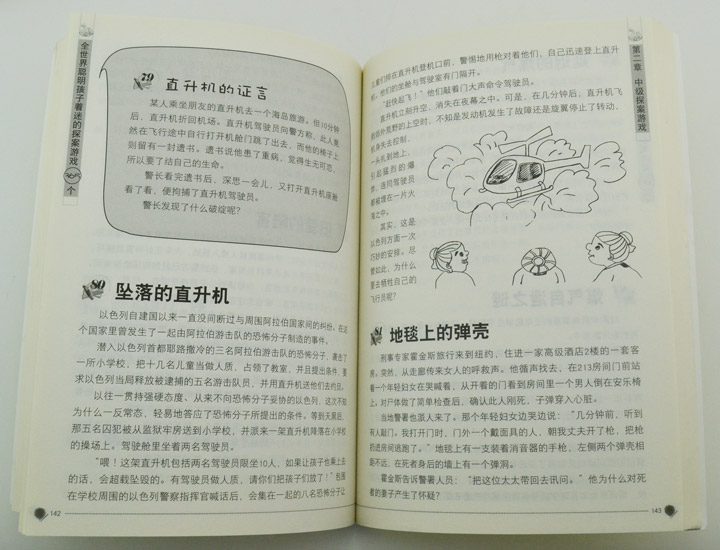 全世界聪明孩子看迷的探案游戏
个
79
直升机的证言
某人乘坐朋友的直升机去一个海岛旅游。但10分钟
后，直升机折回机场。直升机驾驶员向警方称，此人竟
然在飞行途中自行打开舱门跳了出去，而他的椅子上
则留有一封遗书。遗书说他患了重病，觉得生无可恋，
所以要了结自己的生命。
警长看完遗书后，深思一会儿，又打开直升机座舱
看了看，便拘捕了直升机驾驶员。
警长发现了什么破绽呢？
80
坠落的直升机
以色列自建国以来一直没间断过与周围阿拉伯国家间的纠纷。在这
个国家里曾发生了一起由阿拉伯游击队的恐怖分子制造的事件。
潜入以色列首都耶路撒冷的三名阿拉伯游击队的恐怖分子，袭击了
一所小学校，把十几名儿童当做人质，占领了教室，并且提出条件，要
求以色列当局释放被逮捕的五名游击队员，并用直升机送他们去约旦。
以往一贯持强硬态度、从来不向恐怖分子妥协的以色列，这次不知
为什么一反常态，轻易地答应了恐怖分子所提出的条件。等到天黑后，
那五名囚犯被从监狱牢房送到小学校，并派来一架直升机降落在小学校
的操场上。驾驶舱里坐着两名驾驶员。
“喂！这架直升机包括两名驾驶员限坐10人，如果让孩子也乘上去
的话，会超载坠毁的。有驾驶员做人质，请你们把孩子们放了！”包围
在学校周围的以色列警察指挥官喊话后，会集在一起的八名恐怖分子让
142
第二章 中级探案游戏
儿童们排在直升机登机口前，警惕地用枪对着他们，自己迅速登上直升
机。他们的坐舱与驾驶室有门隔开。
“赶快起飞！”他们敲着门大声命令驾驶员。
直升机立刻升空，消失在夜幕之中。可是，在几分钟后，直升机飞
到郊外荒野的上空时，不知是发动机发生了故障还是旋翼停止了转动，
机身失去控制，
一头扎到地上，
引起猛烈的爆
炸，连同驾驶员
都被埋在一片火
海之中。
其实，这是
以色列方面一次
巧妙的安排。尽
管如此，为什么
要去牺牲自己的
飞行员呢？
地毯上的弹壳
刑事专家霍金斯旅行来到纽约，住进一家高级酒店2楼的一套客
房。突然，从走廊传来女人的呼救声。他循声找去，在213房间门前站
着一个年轻妇女在哭喊着，从开着的门看到房间里一个男人倒在安乐椅
上。对尸体做了简单检查后，确认此人刚死，子弹穿入心脏。
当地警署也派人来了。那个年轻妇女边哭边说：“几分钟前，听到
有人敲门。我打开门时，门外一个戴面具的人，朝我丈夫开了枪，把枪
扔进房间逃跑了。”地毯上有一支装着消音器的手枪，左侧两个弹壳相
距不远，在死者身后的墙上有一个弹洞。
霍金斯告诉警署人员：“把这位太太带回去讯问。”他为什么对死
者的妻子产生了怀疑？
143